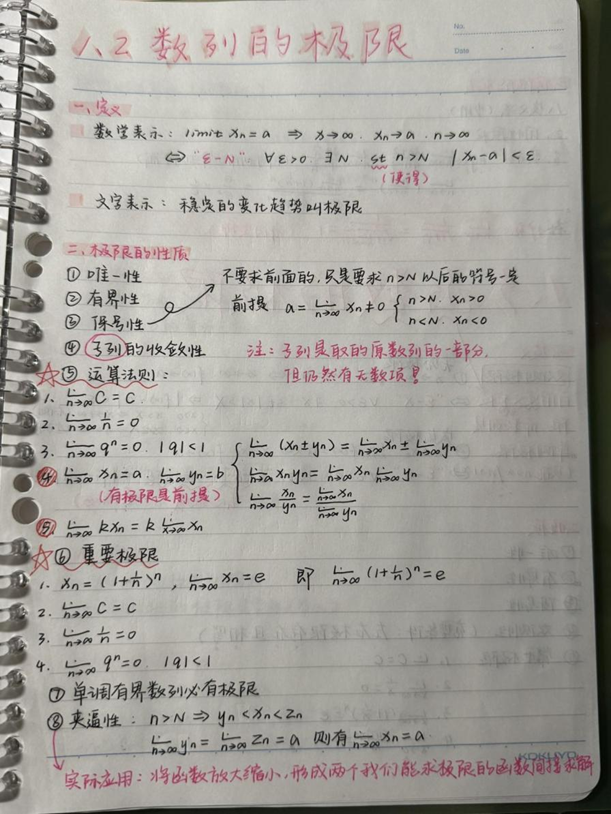 No.
Date
1.2 数列的极限
一、定义
数学表示: limit xn = a ⇒ x→∞. xn→a. n→∞
⇔ "ε-N" ∀ε>0 ∃N st n>N |xn-a|<ε
(使得)
文字表示: 稳定的变化趋势叫极限
二、极限的性质
① 唯一性 不要求前面的,只是要求 n>N 以后的符号一定
② 有界性 前提 a = lim n→∞ xn ≠ 0 { n>N. xn>0
③ 保号性 n<N. xn<0
④ 子列的收敛性 注: 子列是取的原数列的一部分,
☆⑤ 运算法则: 但仍然有无数项!
1. lim n→∞ C = C
2. lim n→∞ 1/n = 0
3. lim n→∞ qⁿ = 0. |q|<1 { lim n→∞ (xn±yn) = lim n→∞ xn ± lim n→∞ yn
④. lim n→∞ xn = a. lim n→∞ yn = b lim n→a xnyn = lim n→∞ xn lim n→∞ yn
(有极限是前提) lim n→∞ xn/yn = lim n→∞ xn / lim n→∞ yn
⑤. lim n→∞ kxn = k lim x→∞ xn
☆⑥ 重要极限
1. xn = (1+1/n)ⁿ, lim n→∞ xn = e 即 lim n→∞ (1+1/n)ⁿ = e
2. lim n→∞ C = C
3. lim n→∞ 1/n = 0
4. lim n→∞ qⁿ = 0. |q|<1
⑦ 单调有界数列必有极限
⑧ 夹逼性: n>N ⇒ yn<xn<zn
lim n→∞ yn = lim n→∞ zn = a 则有 lim n→∞ xn = a
KOKUYO
实际应用: 将函数放大缩小,形成两个我们能求极限的函数间接求解